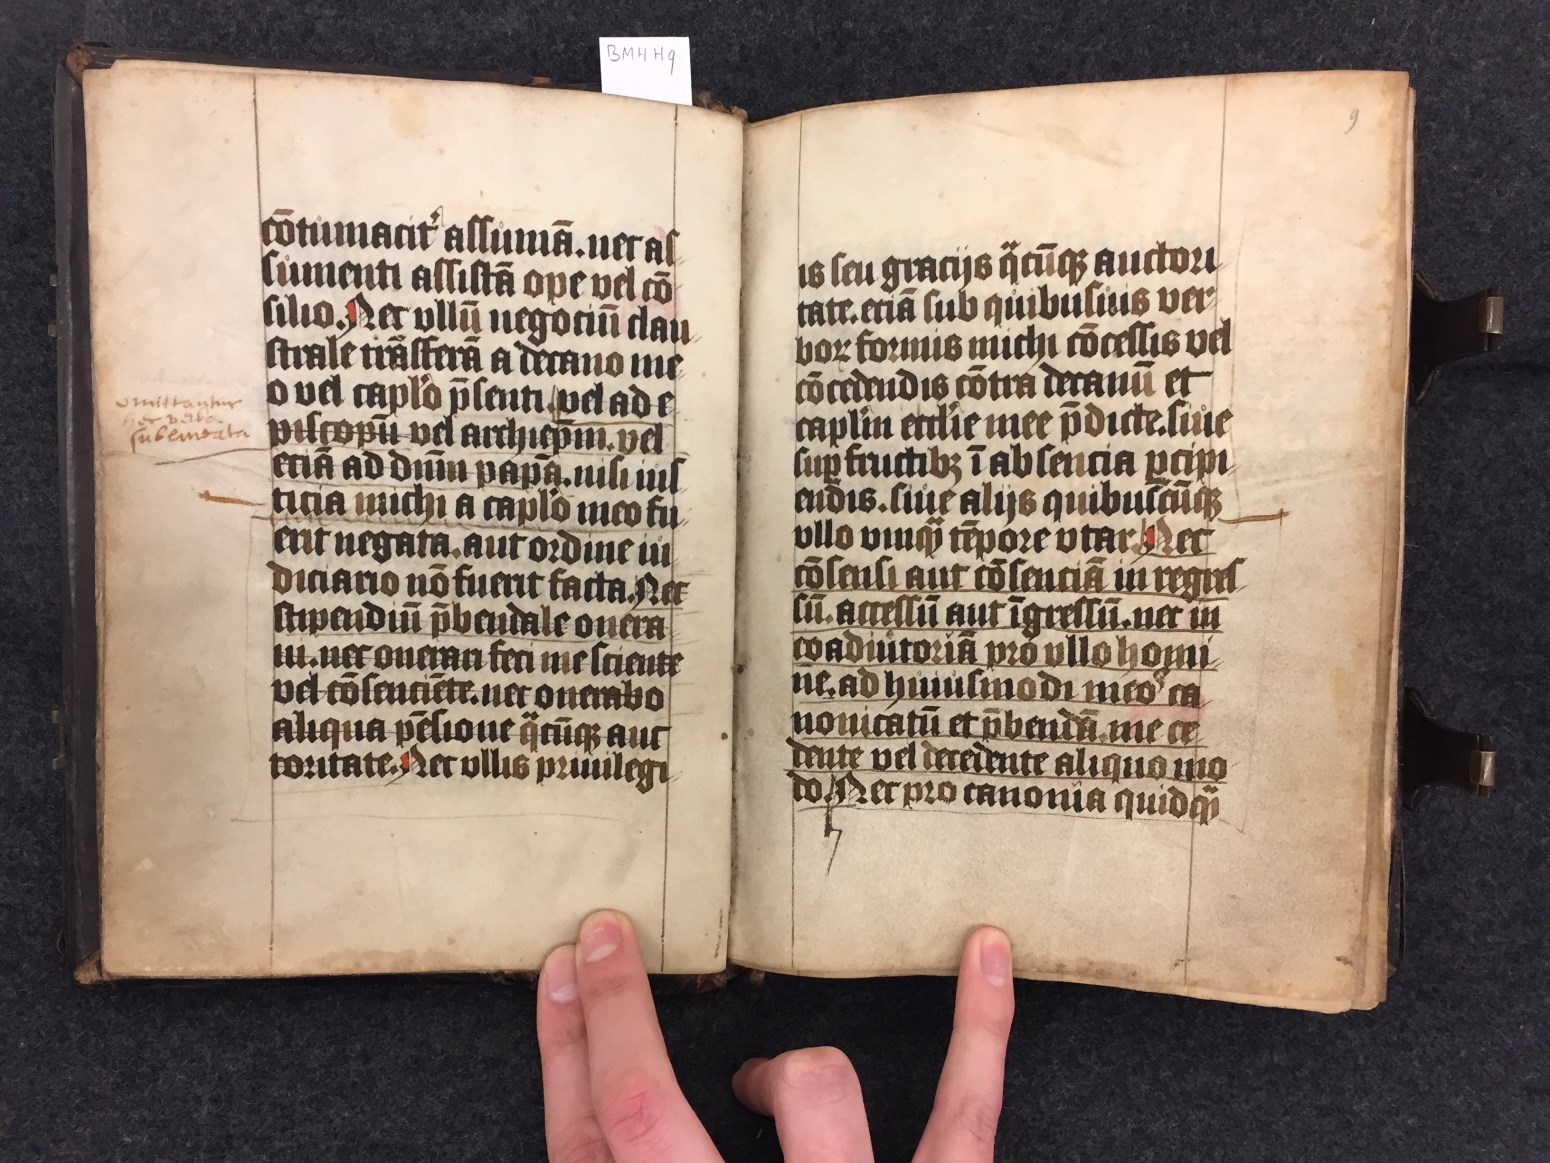 BMH H9
cōtumacit᷑ assumā. nec as
sumenti assistā ope vel cō
silio. Nec vllū negociū clau
strale trāsferā a decano me
o vel caplo p̄senti vel ad e
piscopū vel archiep̄m. vel
eciā ad dnm̄ papā. nisi ius
ticia michi a caplo meo fu
erit negata. aut ordine iu
diciario nō fuerit facta. Nec
stipendiū p̄bendale onera
ui. nec onerari feci me sciente
vel cōsenciēte. nec onerabo
aliqua pēsione q̄cūqꝫ auc
toritate. Nec vllis priuilegi
omittantur
hec verba
sublineata
9
is seu gracijs q̄cūqꝫ auctori
tate. eciā sub quibusuis ver
boꝝ formis michi cōcessis vel
cōcedendis cōtra decanū et
caplm ecclie mee p̄dicte. siue
suꝑ fructibꝫ ī absencia ꝑcipi
endis. siue alijs quibuscūqꝫ
vllo vnqꝫ tēpore vtar. Nec
cōsensi aut cōsenciā in regres
sū. accessū aut īgressū. nec in
coadiutoriā pro vllo homi
ne. ad huiusmodi meos ca
nonicatū et p̄bendā. me ce
dente vel decedente aliquo mo
do. Nec pro canonia quidqꝫ